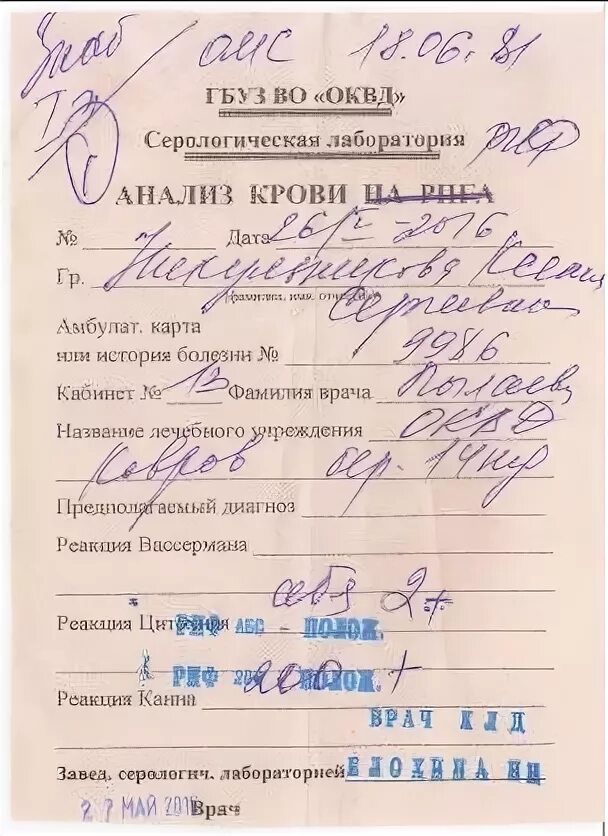 ОМС 18.06.81
ГБУЗ ВО «ОКВД»
Серологическая лаборатория РИФ
АНАЛИЗ КРОВИ НА РПГА
№ Дата 26/V-2016
Гр.
фамилия, имя, отчество
Сергеевна
Амбулат. карта
или история болезни № 9986
Кабинет № 13 Фамилия врача
Название лечебного учреждения ОКВД
Ковров бер. 14 нед
Предполагаемый диагноз
Реакция Вассермана
абс 2+
Реакция Цитохолевая
РИФ АБС - ПОЛОЖ.
РИФ 200 ПОЛОЖ. +
Реакция Канна
ВРАЧ КЛД
Завед. серологич. лабораторией БЛОХИНА НН
27 МАЙ 2016 Врач